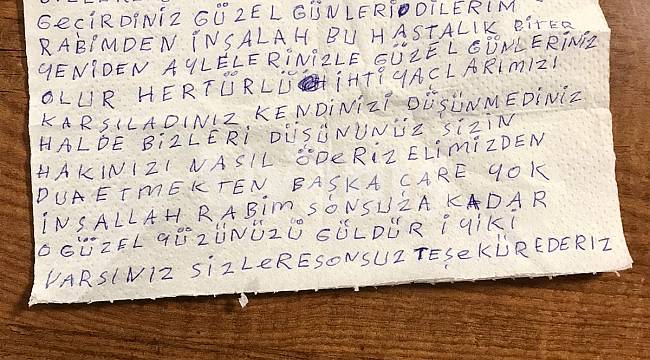 GEÇİRDİNİZ GÜZEL GÜNLERİ DİLERİM
RABİMDEN İNŞALAH BU HASTALIK BİTER
YENİDEN AYLELERİNİZLE GÜZEL GÜNLERİNİZ
OLUR HERTÜRLÜ İHTİYAÇLARIMIZI
KARŞILADINIZ KENDİNİZİ DÜŞÜNMEDİNİZ
HALDE BİZLERİ DÜŞÜNÜNÜZ SİZİN
HAKINIZI NASIL ÖDERİZ ELİMİZDEN
DUA ETMEKTEN BAŞKA ÇARE YOK
İNŞALLAH RABİM SONSUZA KADAR
O GÜZEL YÜZÜNÜZÜ GÜLDÜR İYİKİ
VARSINIZ SİZLERE SONSUZ TEŞEKÜR EDERİZ